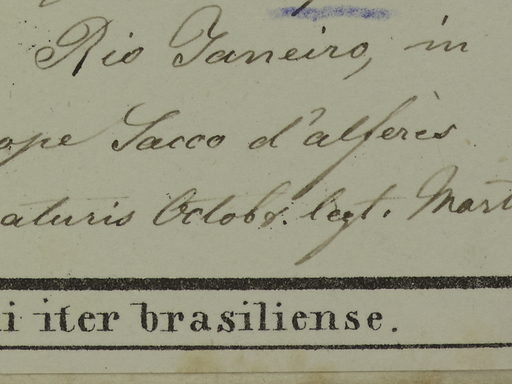 Rio Janeiro, in
ope Sacco d'alferès
aturis Octobr. legt. Mart
i iter brasiliense.